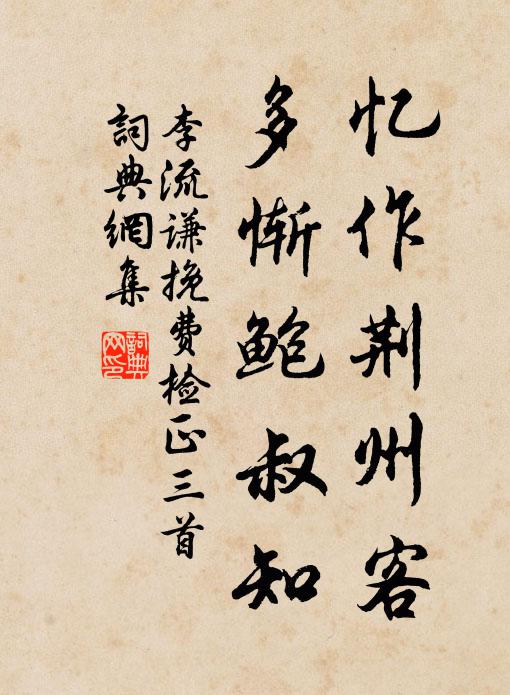 忆作荆州客
多惭鲍叔知
李流谦挽费检正三首
詞典網集
詞典
网印